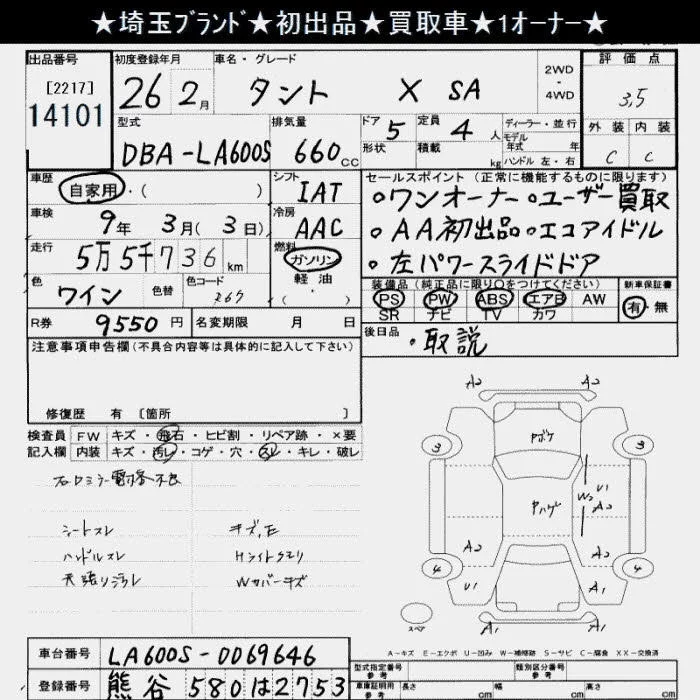 ★埼玉ブランド★初出品★買取車★1オーナー★
出品番号 初度登録年月 車名・グレード 2WD・4WD 評価点
[2217] 14101 26年 2月 タント X SA 3.5
型式 排気量 ドア 5 定員 4人 ディーラー・並行 外装 内装
形状 積載 kg モデル年式 年 ハンドル 左・右
DBA-LA600S 660cc C C
車歴 自家用・( ) シフト IAT セールスポイント(正常に機能するものに限ります)
・ワンオーナー・ユーザー買取
車検 9年 3月(3日) 冷房 AAC ・AA初出品・エコアイドル
走行 5万5千736km 燃料 ガソリン 軽油 ( ) ・左パワースライドドア
色 ワイン 色替 色コード 装備品(純正品に限り○をつけてください) 新車保証書
PS PW ABS エアB AW 有・無
SR ナビ TV カワ
R券 9550円 名変期限 月 日 後日品 ・取説
注意事項申告欄(不具合内容等は具体的に記入して下さい)
修復歴 有 [箇所 ]
検査員 FW キズ・飛石・ヒビ割・リペア跡・×要
記入欄 内装 キズ・汚レ・コゲ・穴・スレ・キレ・破レ
シートスレ キズ,E
ハンドルスレ Hライトクモリ
Wカバーキズ
A2 A2
ヤボケ
3 3
ヤハゲ
U1
W2
A2
A2 A2
4 4
U1 A1
スペア A1 A1
A-キズ E-エクボ U-凹み W-補修跡 S-サビ C-腐食 XX-交換済
車台番号 LA600S-0069646
登録番号 熊谷 580 は 2753
型式指定番号 参考 類別区分番号 参考
車庫証明用 参考 長さ cm 幅 cm 高さ cm